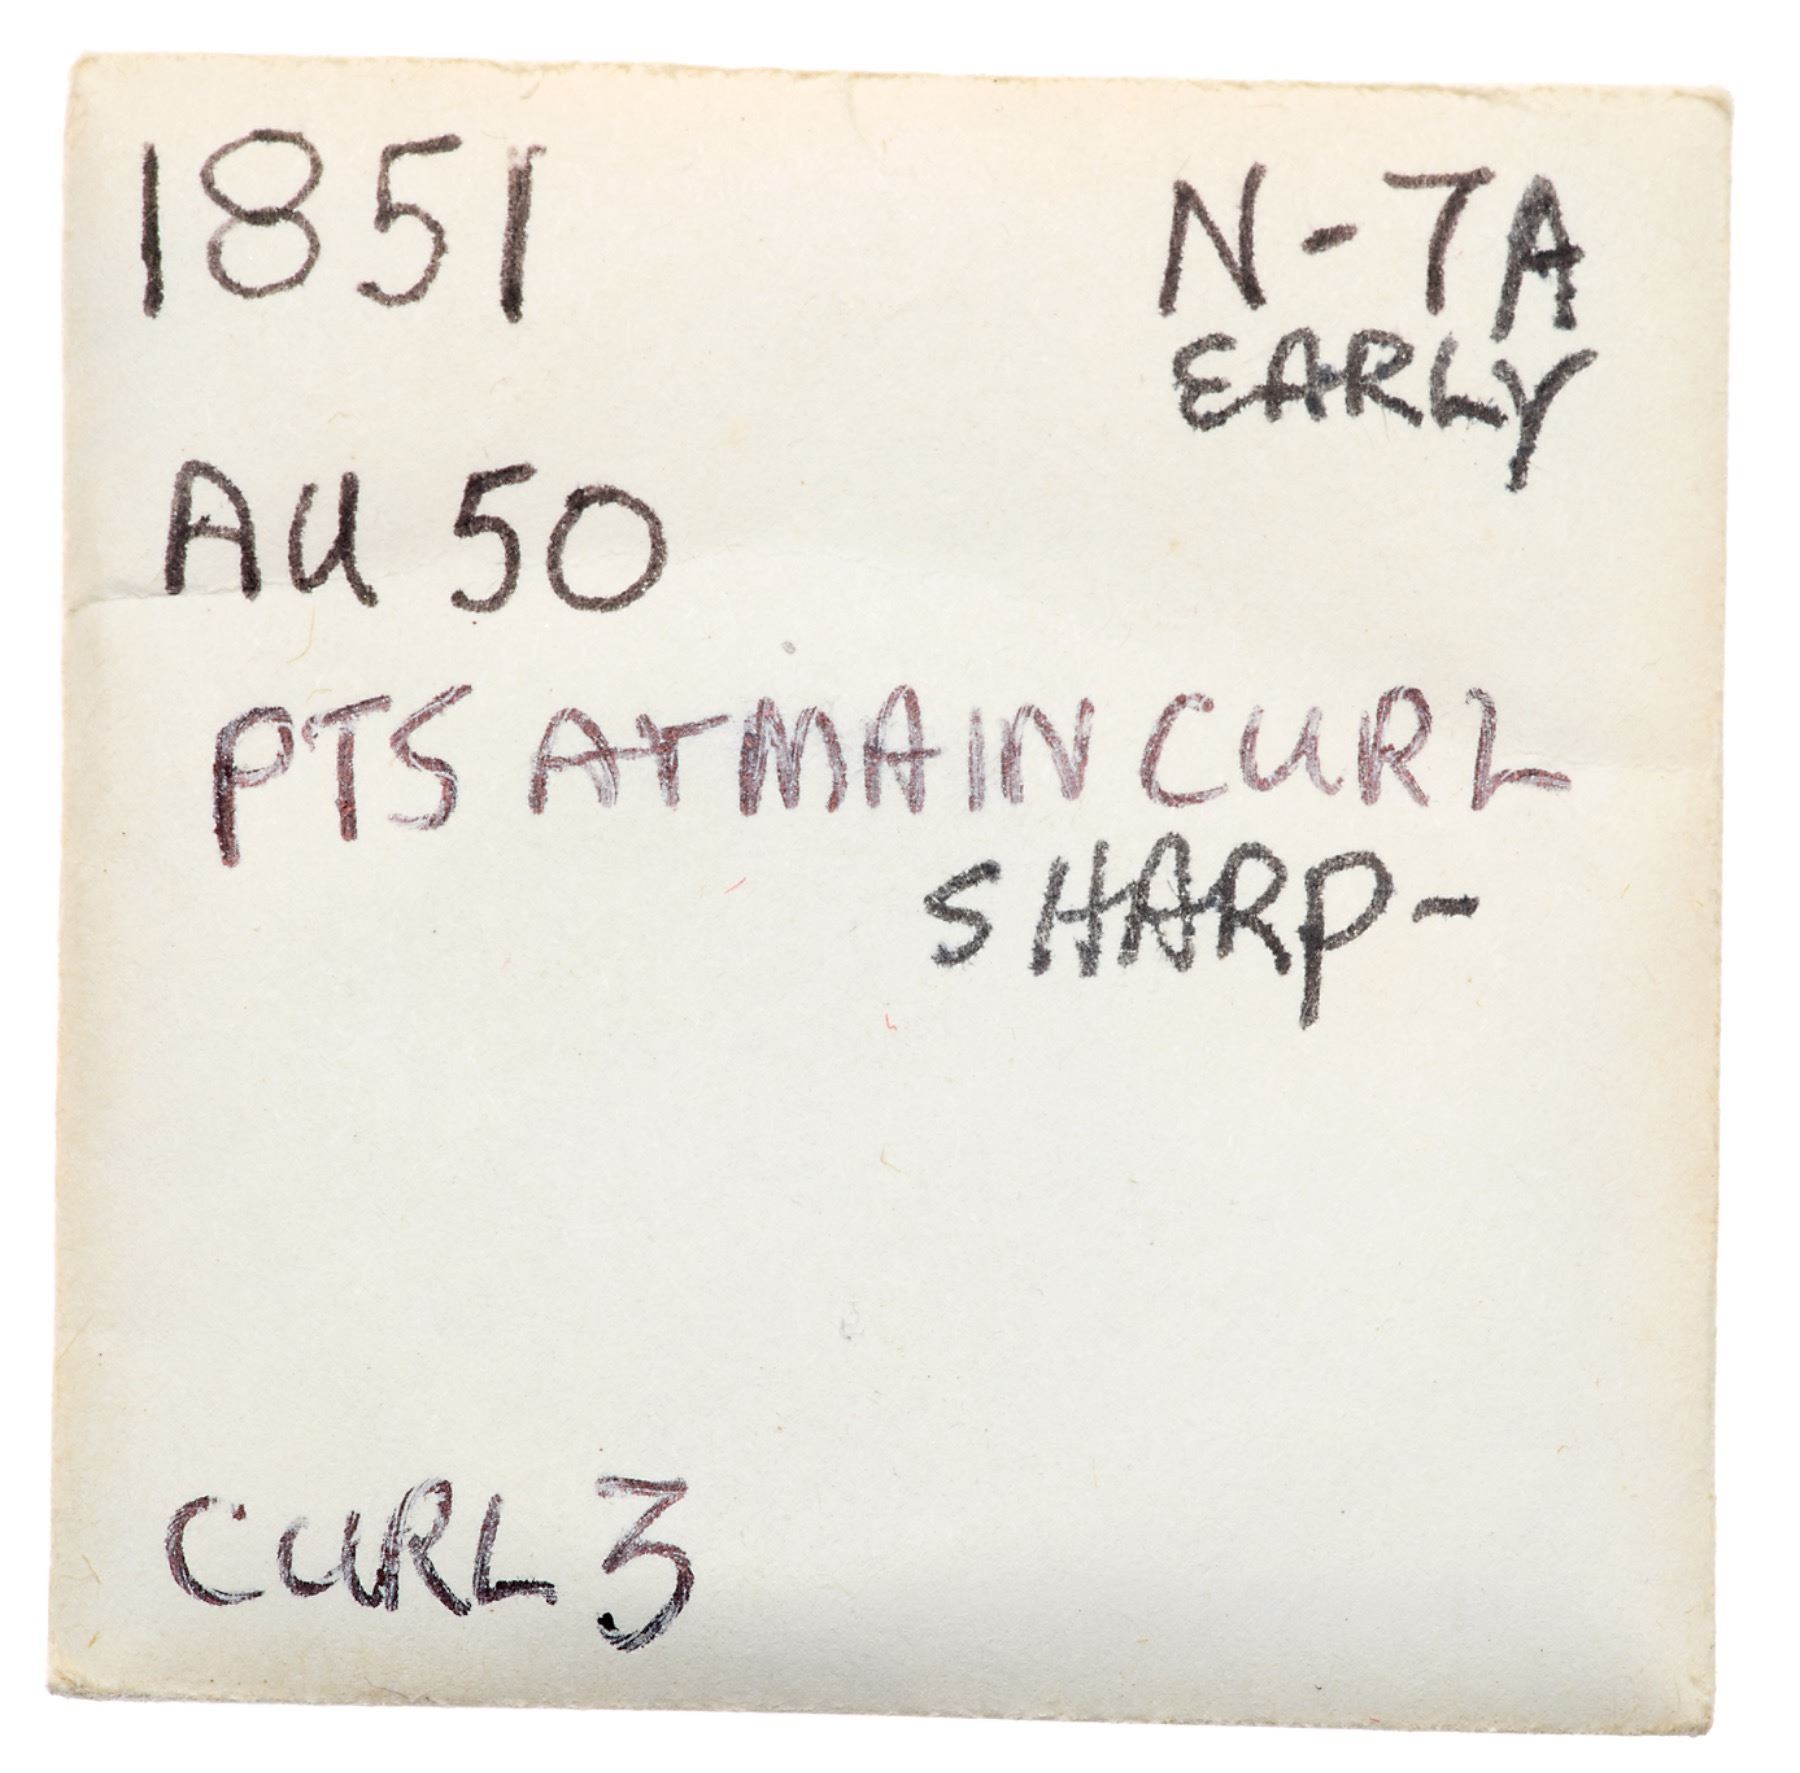 1851 N-7A
EARLY
AU 50
PTS AT MAIN CURL
SHARP-
CURL 3